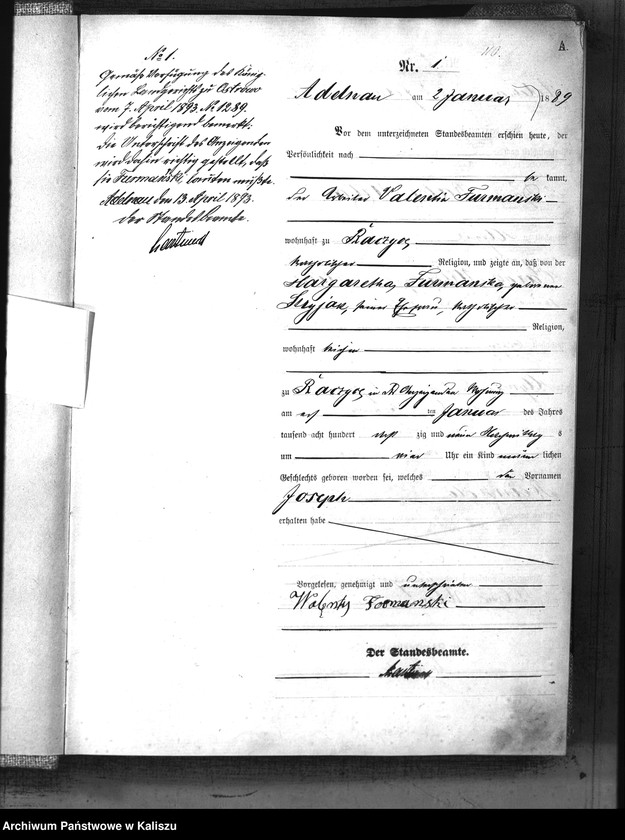 No 1.
Gemäß Verfügung des König-
lichen Landgerichts zu Ostrowo
vom 7. April 1893. No 1289.
wird berichtigend bemerkt:
Die Unterschrift des Anzeigenden
wird dahin richtig gestellt, daß
sie Furmański, lauten müßte.
Adelnau den 13. April 1893.
Der Standesbeamte.
A.
Nr. 1
Adelnau am 2 Januar 1889
Vor dem unterzeichneten Standesbeamten erschien heute, der
Persönlichkeit nach
be kannt,
der Arbeiter Valentin Furmanski
wohnhaft zu Raczyce
katholischer Religion, und zeigte an, daß von der
Margaretha Furmanska, geborene
seiner Ehefrau, katholischer
Religion,
wohnhaft bei ihm
zu Raczyce in des Anzeigenden Wohnung
am ersten Januar des Jahres
tausend acht hundert acht zig und neun Nachmittags
um vier Uhr ein Kind männ lichen
Geschlechts geboren worden sei, welches den Vornamen
Joseph
erhalten habe
Vorgelesen, genehmigt und unterschrieben
Walenty Formanski
Der Standesbeamte.
Archiwum Państwowe w Kaliszu